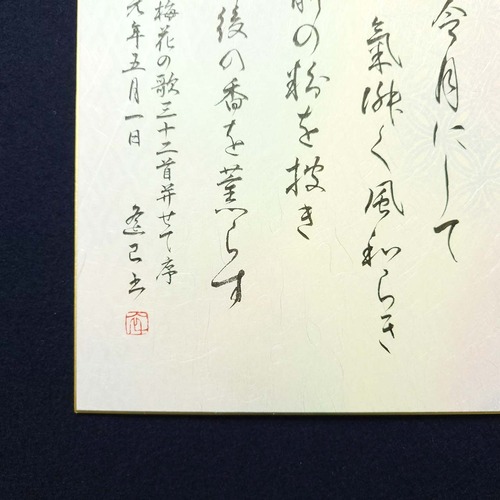 令月にして
氣淑く風和らき
前の粉を披き
後の香を薫らす
梅花の歌三十二首并せて序
元年五月一日